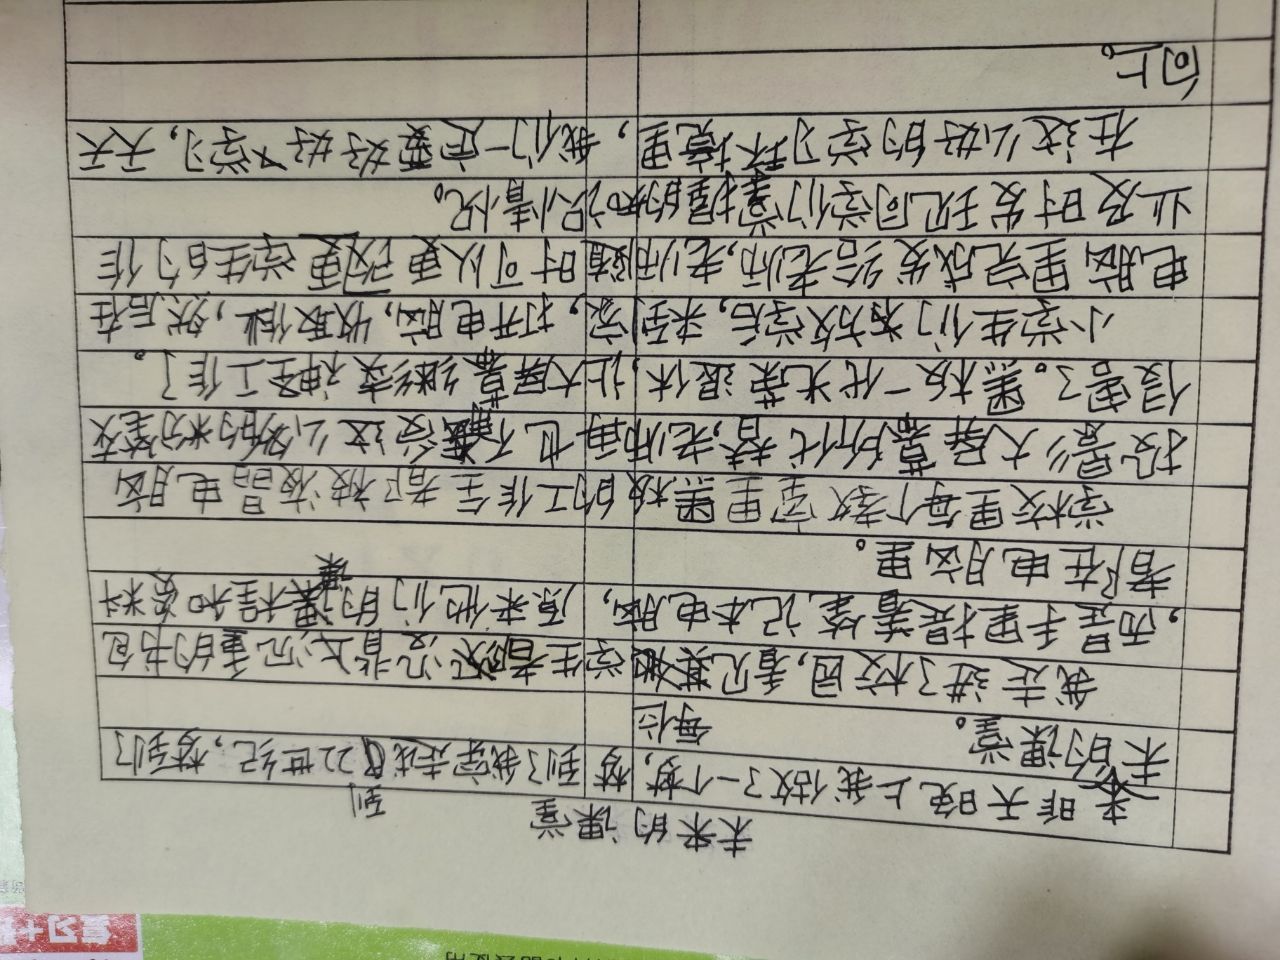 未来的课堂
昨天晚上我做了一个梦,梦到了我穿越到22世纪,梦到了
未来的课堂。
我走进了校园,看见每位学生都没背上沉重的书包
,而是手里提着笔记本电脑,原来他们的课程和资料
都在电脑里。
学校里每个教室里黑板的工作全都被液晶电脑
投影大屏幕所代替,老师再也不用受这么多的粉笔灰
侵害了。黑板一代光荣退休,让大屏幕继续神圣工作了。
小学生们为放学后,来到家,打开电脑,收取作业,然后在
电脑里完成发给老师,老师随时可以更改更学生的作
业及时发现同学们掌握的知识情况。
在这么好的学习环境里,我们一定要好好学习,天天
向上。
复习+
使用